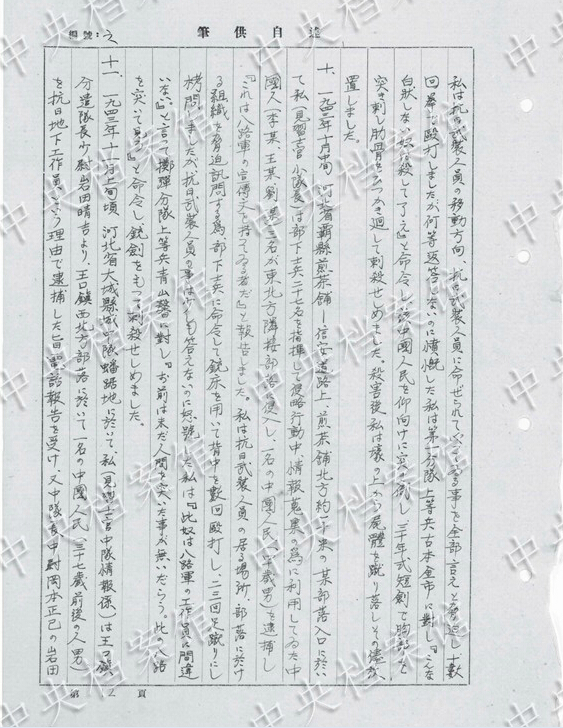 自供筆述
編號:之
私は抗日武裝人員の移動方向、抗日武裝人員に命ぜられてやってゐる事を全部言えと脅迫し十數
回擧で毆打しましたが何等返答しないのに憤慨した私は第一分隊上等兵古本金市に對し『こんな
白狀しない奴は殺して了え』と命令し該中國人民を仰向けに突倒し三十年式短劍で胸部を
突き刺し肋骨を二つか三つ廻して刺殺せしめました。殺害後私は壕の上から屍體を蹴り落しその儘放
置しました。
十、一九四三年十月中旬 河北省霸縣煎茶舖―信安道路上、煎茶舖北方約一千米の某部落入口に於い
て私(見習士官小隊長)は部下士兵二十七名を指揮して侵略行動中、情報蒐集の爲に利用してゐた中
國人(李某、王某、劉某三名)が東北方隣接部落に侵入し、一名の中國人民(歲男)を逮捕し
『これは八路軍の宣傳文を持ってゐる者だ』と報告しました。私は抗日武裝人員の居る場所、部落に於け
る組織を脅迫訊問する爲部下士兵に命令して銃床を用いて背中を數回毆打し、二三回足蹴りにし
拷問しましたが抗日武裝人員の事は少しも答えないのに怒號した私は『此奴は八路軍の工作員に間違
いない』と言って擲彈分隊上等兵青山に對し『お前は未だ人間を突いた事が無いだらう。此の八路
を突いて見ろ』と命令し銃劍をもって刺殺せしめました。
十一、一九四三年十一月上旬頃 河北省大城縣城中隊蟠踞地に於いて、私(見習士官中隊情報係)は王口鎮
分遣隊長少尉岩田晴吉より、王口鎮西北方部落に於いて一名の中國人民(三十七歲前後の人男)
を抗日地下工作員といふ理由で逮捕した旨電話報告を受け、又中隊長、中尉岡本正巳の岩田
第 之 頁
中央档案馆